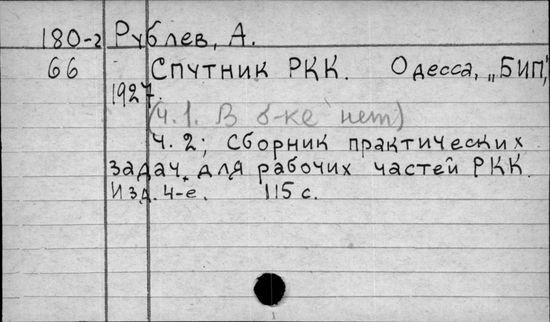 180-2 Рублев, А.
66 Спутник РКК. Одесса, „БИП",
1927.
(ч.1. В б-ке нет)
ч.2; Сборник практических
задач для рабочих частей РКК.
Изд. 4-е. 115 с.